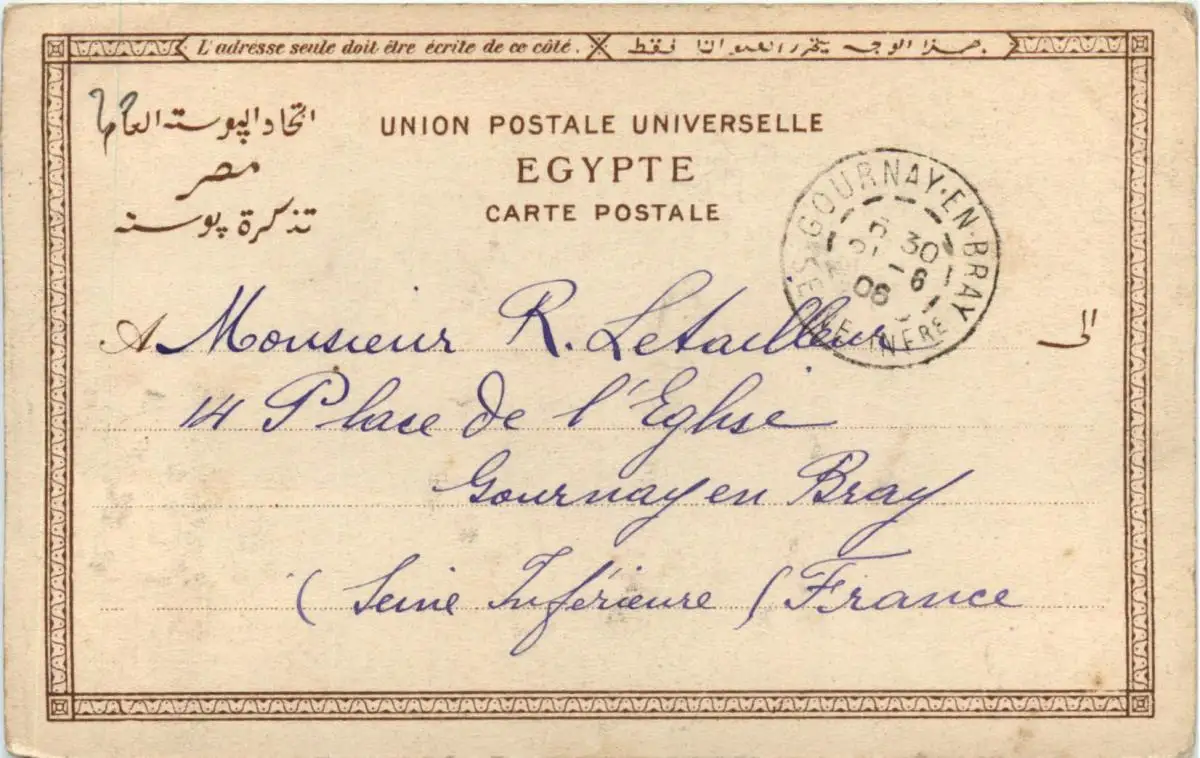 L'adresse seule doit être écrite de ce côté. هذا الوجه يتحرر العنوان فقط.
اتحاد البوسته العام
UNION POSTALE UNIVERSELLE
مصر
EGYPTE
تذكرة بوسته
CARTE POSTALE
GOURNAY-EN-BRAY
30
-6
06
INFRE
A Monsieur R. Letailleur الى
14 Place de l'Eglise
Gournay en Bray
(Seine Inférieure) France